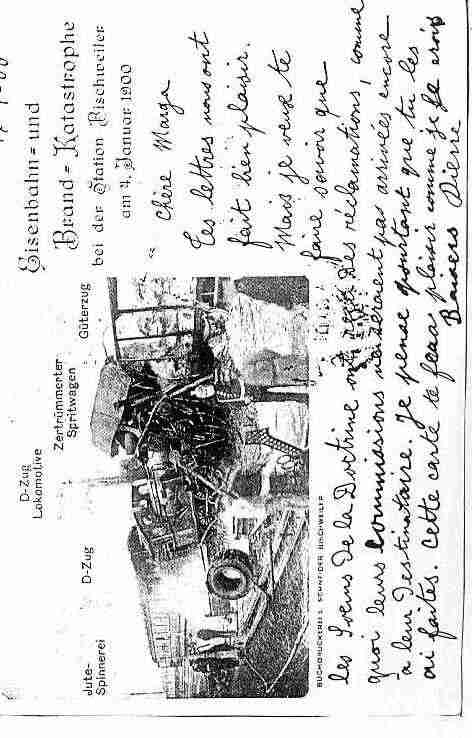 Eisenbahn= und
Brand=Katastrophe
bei der Station Bischweiler
am 4. Januar 1900
Jute-
Spinnerei
D-Zug
D-Zug
Lokomotive
Zertrümmerter
Spritwagen
Güterzug
BUCHDRUCKEREI E. SCHNEIDER BISCHWEILER
Chère Marge
Tes lettres nous ont
fait bien plaisir.
Mais je veux te
faire savoir que
les Soeurs de la Doctrine ont des réclamations, comme
quoi leurs Commissions ne seraient pas arrivées encore
à leur destinataire. Je pense pourtant que tu les
ai faites. Cette carte te feras plaisir comme je le crois
Baisers Pierre